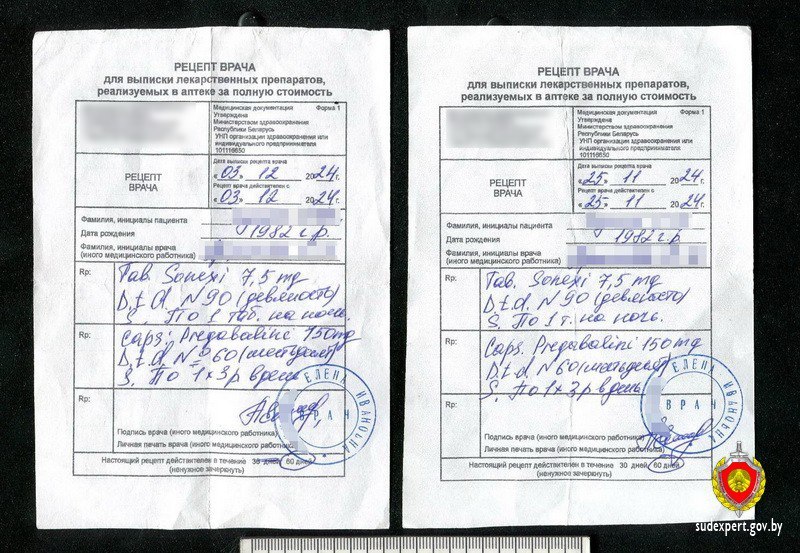 РЕЦЕПТ ВРАЧА
для выписки лекарственных препаратов,
реализуемых в аптеке за полную стоимость
Медицинская документация Форма 1
Утверждена
Министерством здравоохранения
Республики Беларусь
УНП организации здравоохранения или
индивидуального предпринимателя
101116650
РЕЦЕПТ
ВРАЧА
Дата выписки рецепта врача
«03» 12 2024г.
Рецепт врача действителен с
«03» 12 2024г.
Фамилия, инициалы пациента
Дата рождения 1982 г.р.
Фамилия, инициалы врача
(иного медицинского работника)
Rp: Tab. Sonexi 7,5 mg
D.t.d. N 90 (девяносто)
S. По 1 таб. на ночь.
Rp: Caps. Pregabalini 150 mg
D.t.d. N 60 (шестьдесят)
S. По 1 х 3 р
Rp:
Подпись врача (иного медицинского работника)
Личная печать врача (иного медицинского работника)
ЕЛЕНА ИВАНОВНА
ВРАЧ
Настоящий рецепт действителен в течение 30 дней 60 дней
(ненужное зачеркнуть)
РЕЦЕПТ ВРАЧА
для выписки лекарственных препаратов,
реализуемых в аптеке за полную стоимость
Медицинская документация Форма 1
Утверждена
Министерством здравоохранения
Республики Беларусь
УНП организации здравоохранения или
индивидуального предпринимателя
101116650
РЕЦЕПТ
ВРАЧА
Дата выписки рецепта врача
«25» 11 2024г.
Рецепт врача действителен с
«25» 11 2024г.
Фамилия, инициалы пациента
Дата рождения 1982 г.р.
Фамилия, инициалы врача
(иного медицинского работника)
Rp: Tab. Sonexi 7,5 mg
D.t.d. N 90 (девяносто)
S. По 1 т. на ночь.
Rp: Caps. Pregabalini 150 mg
D.t.d. N 60 (шестьдесят)
S. По 1 х 3 р
Rp:
Подпись врача (иного медицинского работника)
Личная печать врача (иного медицинского работника)
ЕЛЕНА ИВАНОВНА
ВРАЧ
Настоящий рецепт действителен в течение 30 дней 60 дней
(ненужное зачеркнуть)
sudexpert.gov.by